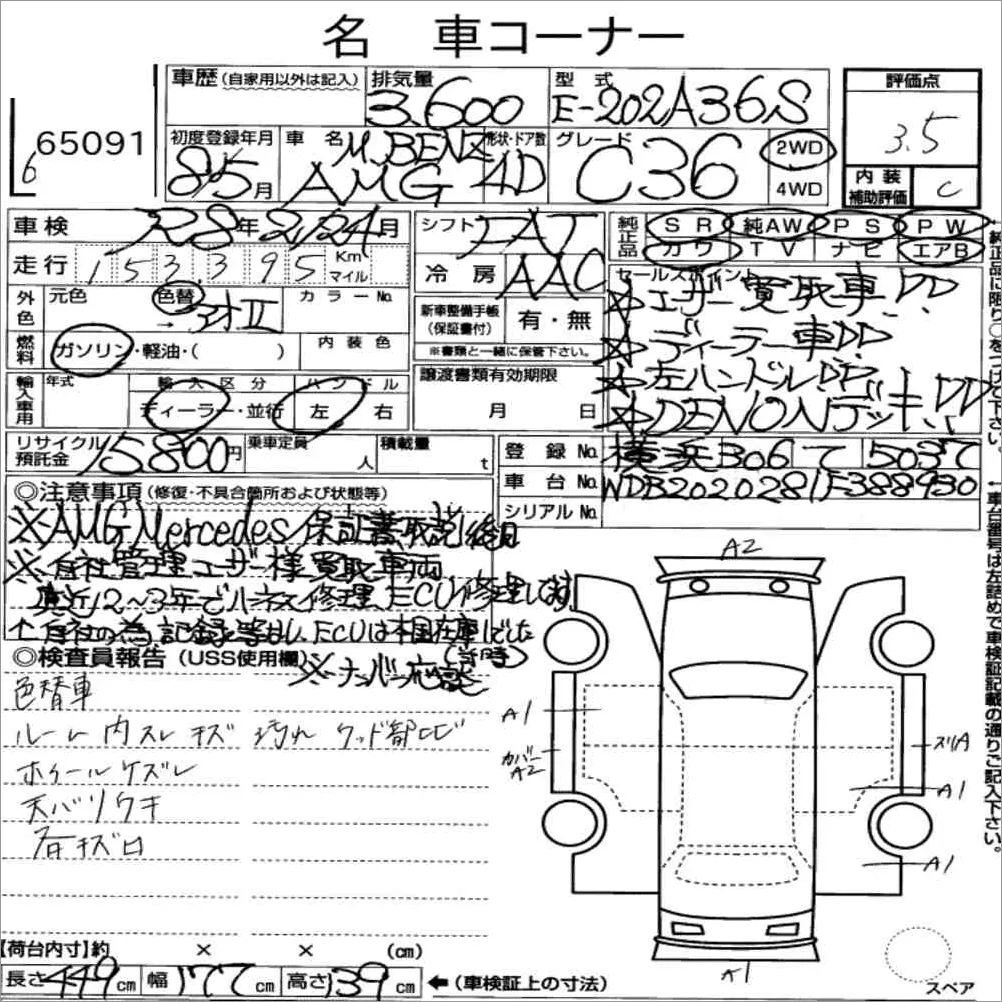 名 車コーナー
65091
6
車歴 (自家用以外は記入)
排気量 3.600
型式 E-202A36S
評価点 3.5
初度登録年月 8/5月
車名 M.BENZ AMG
形状・ドア数 4D
グレード C36
2WD
4WD
内装補助評価 C
車検 R8年2/24月
シフト FAT
純正品 SR 純AW PS PW
カワ TV ナビ エアB
走行 153,395 Km マイル
冷房 AAC
セールスポイント
☆ユーザー買取車!DD
☆ディーラー車DD
☆左ハンドルDD
☆DENONデッキ!DD
外色 元色 色替 カラーNo.
新車整備手帳(保証書付) 有・無
※書類と一緒に保管下さい。
燃料 ガソリン・軽油・( )
内装色
譲渡書類有効期限
月 日
輸入車用 年式
輸入区分 ディーラー・並行
ハンドル 左 右
リサイクル預託金 15800円
乗車定員 人
積載量 t
登録No. 横浜306 て 5037
車台No. WDB2020281F388930
シリアルNo.
◎注意事項 (修復・不具合箇所および状態等)
※AMG Mercedes 保証書取説後日
※自社管理ユーザー様買取車両
直近12~3年でハーネス修理、ECU修理してます
↑自社の為、記録等なし、ECUは本国在庫でした
(当時)
◎検査員報告 (USS使用欄)
※ナンバー応談
色替車
ルーム内スレ キズ 汚れ ウッド部ヒビ
ホイールケズレ
天バリウキ
各キズ凹
A2
A1
カバーA2
ズリA
A1
A1
A1
スペア
【荷台内寸】約 × × (cm)
長さ 449 cm 幅 177 cm 高さ 139 cm
←(車検証上の寸法)
純正品に限り○をつけて下さい。
←車台番号は左詰めで車検証記載の通りご記入下さい。